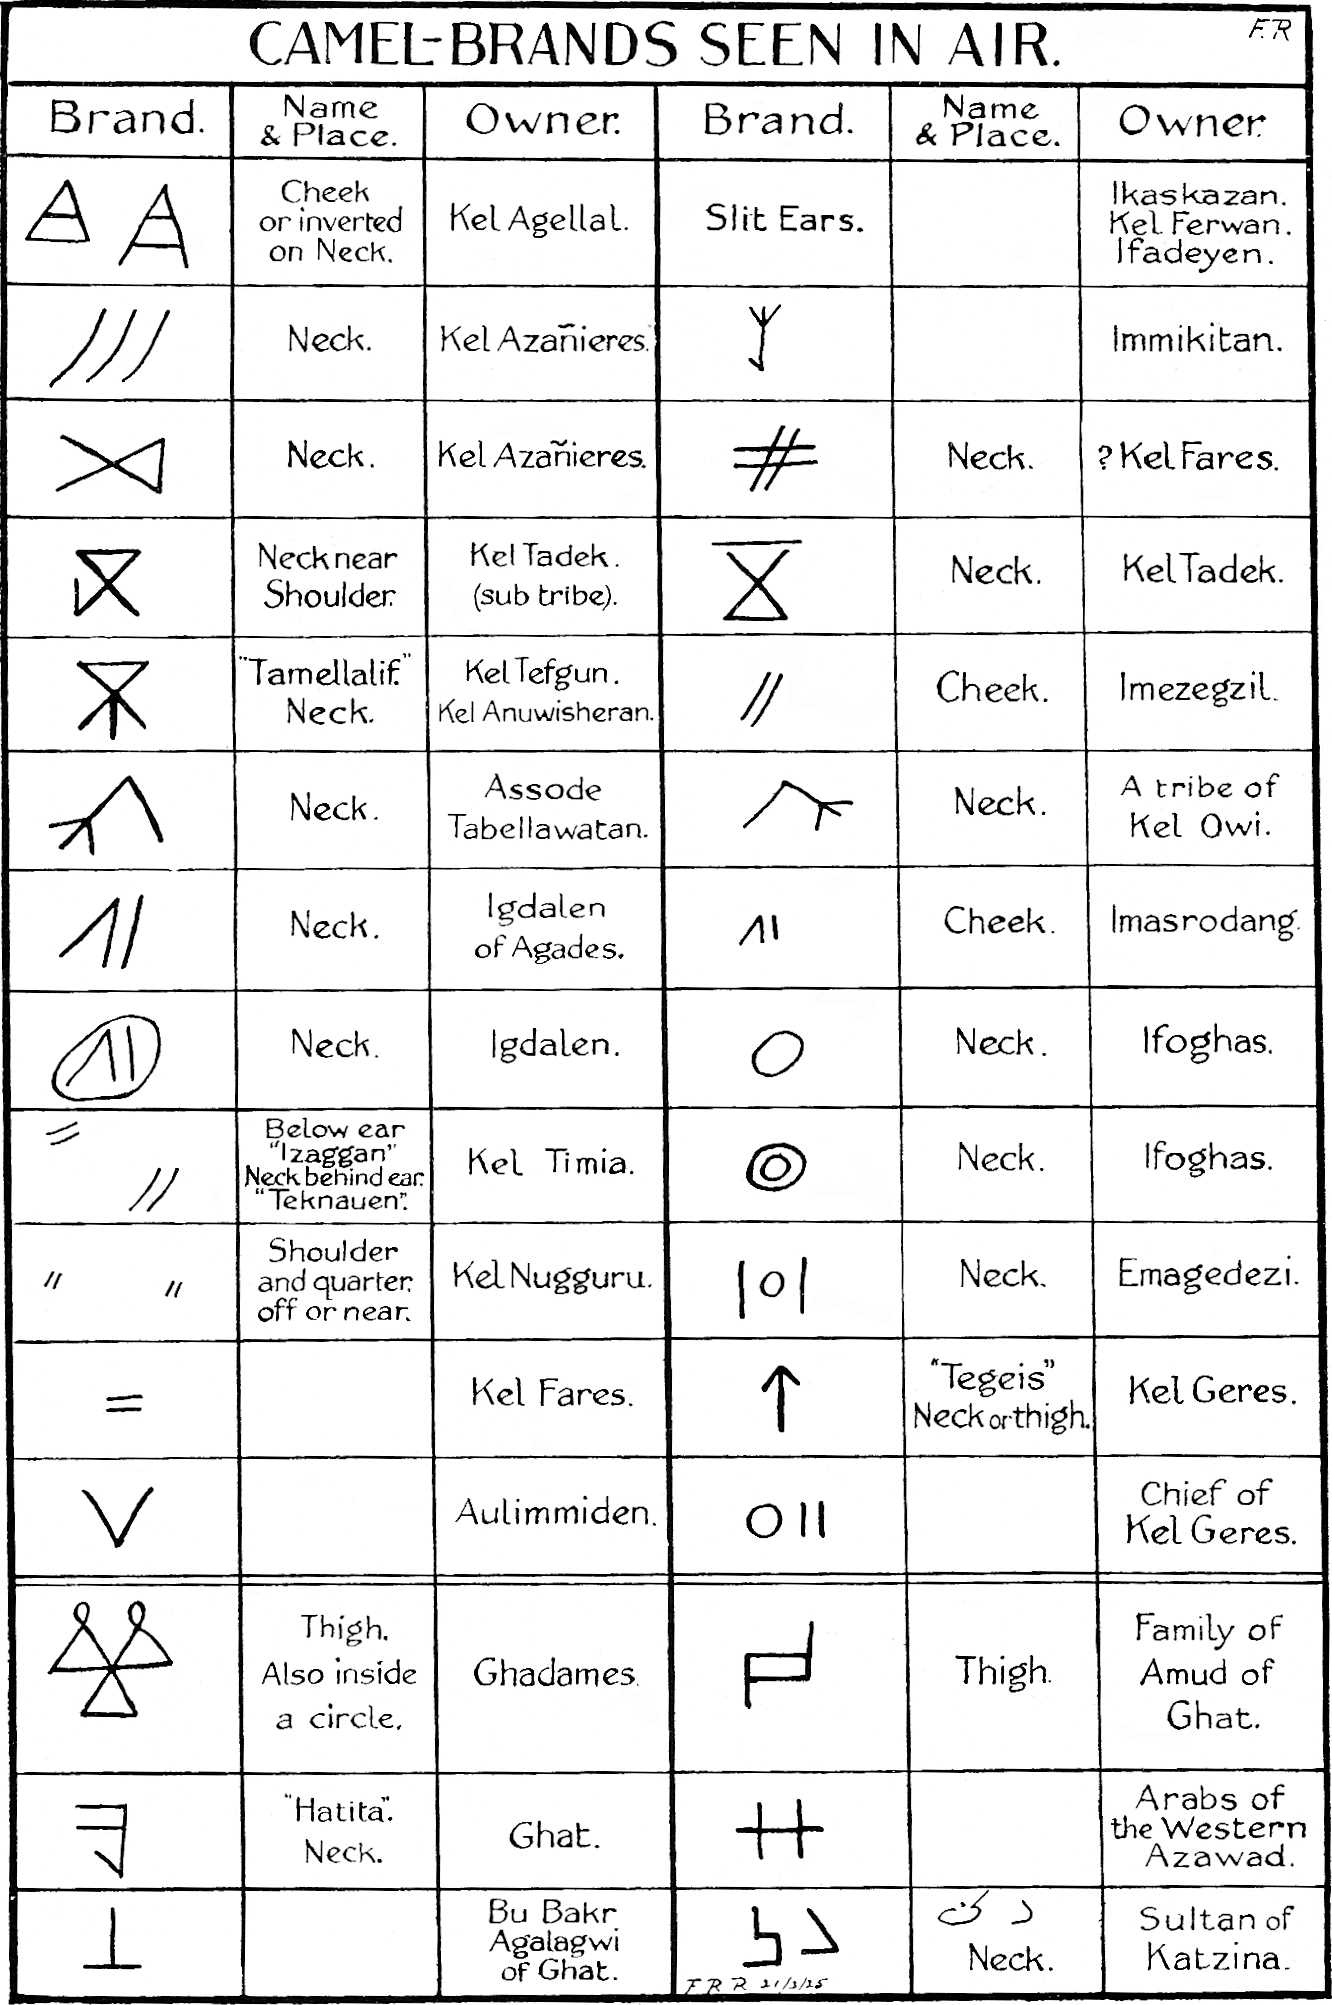 CAMEL-BRANDS SEEN IN AIR.
F.R
Brand.
Name
& Place.
Owner.
Brand.
Name
& Place.
Owner.
Cheek
or inverted
on Neck.
Kel Agellal.
Slit Ears.
Ikaskazan.
Kel Ferwan.
Ifadeyen.
Neck.
Kel Azañieres.
Immikitan.
Neck.
Kel Azañieres.
Neck.
? Kel Fares.
Neck near
Shoulder.
Kel Tadek.
(sub tribe).
Neck.
Kel Tadek.
"Tamellalif."
Neck.
Kel Tefgun.
Kel Anuwisheran.
Cheek.
Imezegzil.
Neck.
Assode
Tabellawatan.
Neck.
A tribe of
Kel Owi.
Neck.
Igdalen
of Agades.
Cheek.
Imasrodang.
Neck.
Igdalen.
Neck.
Ifoghas.
Below ear
"Izaggan"
Neck behind ear.
"Teknauen".
Kel Timia.
Neck.
Ifoghas.
Shoulder
and quarter,
off or near.
Kel Nugguru.
Neck.
Emagedezi.
Kel Fares.
"Tegeis"
Neck or thigh.
Kel Geres.
Aulimmiden.
Chief of
Kel Geres.
Thigh.
Also inside
a circle.
Ghadames.
Thigh.
Family of
Amud of
Ghat.
"Hatita".
Neck.
Ghat.
Arabs of
the Western
Azawad.
Bu Bakr
Agalagwi
of Ghat.
F R R 21/3/25
Neck.
Sultan of
Katzina.